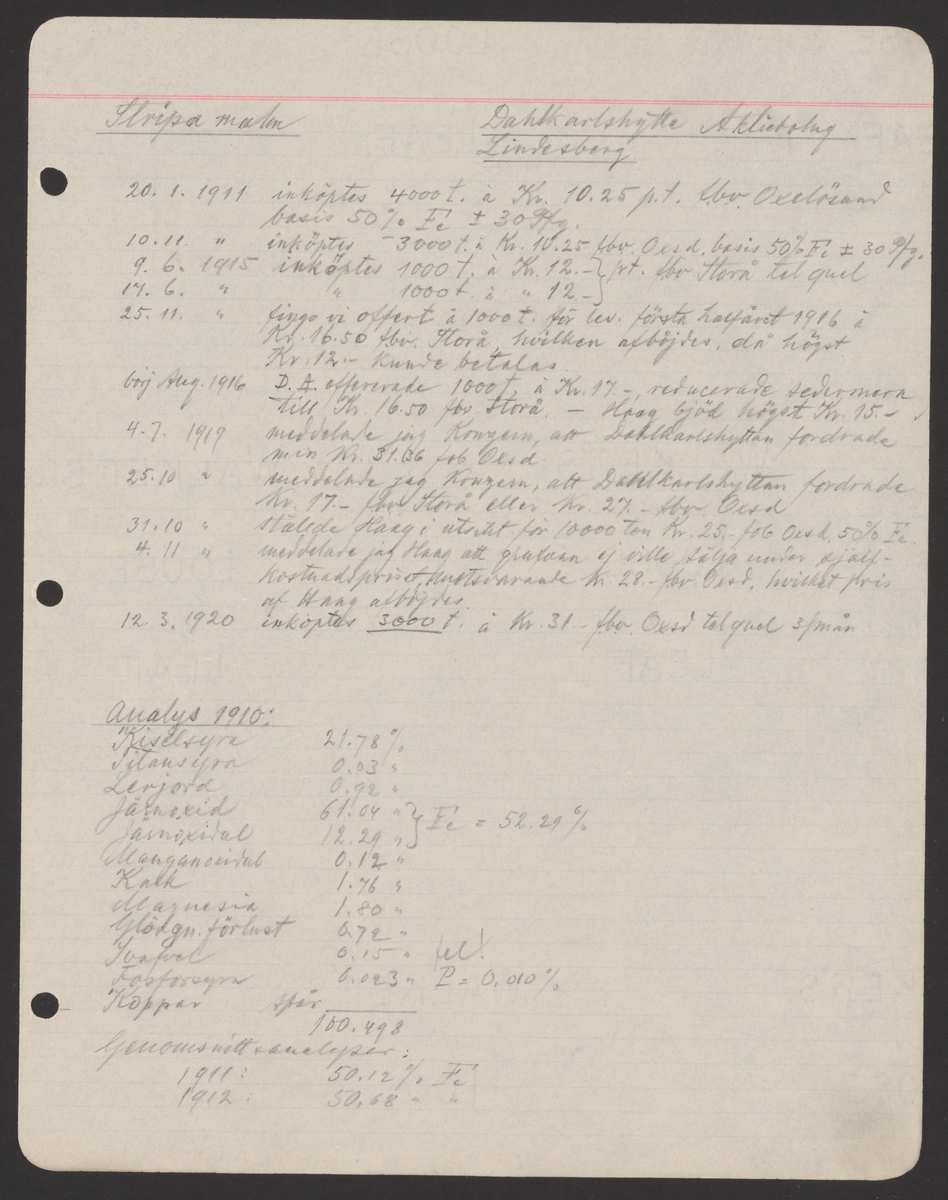 Stripa malm
Dahlkarlshytte Aktiebolag
Lindesberg
20. 1. 1911 inköptes 4000 t. à Kr. 10.25 p.t. fbv. Oxelösund
basis 50% Fe ± 30 Pfg.
10.11. " inköptes ~3000 t. à Kr. 10.25 fbv. Oxsd. basis 50% Fe ± 30 Pfg.
9. 6. 1915 inköptes 1000 t. à Kr. 12.- } p.t. fbv Storå tel quel
17. 6. " " 1000 t à " 12.-
25. 11. " fingo vi offert å 1000 t. för lev. första halfåret 1916 à
Kr. 16.50 fbv. Storå, hvilken afböjdes, då högst
Kr. 12.- kunde betalas.
börj Aug. 1916 D.A. offererade 1000 t. à Kr. 17.-, reducerade sedermera
till Kr. 16.50 fbv. Storå. - Haag bjöd högst Kr. 15.-
4.7. 1919 meddelade jag Konzern, att Dahlkarlshyttan fordrade
min Kr. 31.36 fob Oxsd.
25.10 " meddelade jag Konzern, att Dahlkarlshyttan fordrade
Kr. 17.- fbv. Storå eller Kr. 27.- fbv. Oxsd
31.10 " ställde Haag i utsikt för 10000 ton Kr. 25.- fob Oxsd. 50% Fe.
4. 11 " meddelade jag Haag att grufvan ej ville sälja under själf-
kostnadspriset, motsvarande Kr. 28.- fbv. Oxsd, hvilket pris
af Haag afböjdes.
12. 3. 1920 inköptes 3000 t. à Kr. 31.- fbv. Oxsd tel quel 3/mån
Analys 1910:
Kiselsyra 21.78 %
Titansyra 0.03 "
Lerjord 0.92 "
Järnoxid 61.04 " } Fe = 52.29 %
Järnoxidul 12.29 "
Manganoxidul 0.12 "
Kalk 1.76 "
Magnesia 1.80 "
Glödgn. förlust 0.72 "
Svafvel 0.15 " fel!
Fosforsyra 0.023 " P = 0.010 %
Koppar spår
100.498
Genomsnittsanalyser:
1911: 50.12 % Fe
1912: 50.68 " "